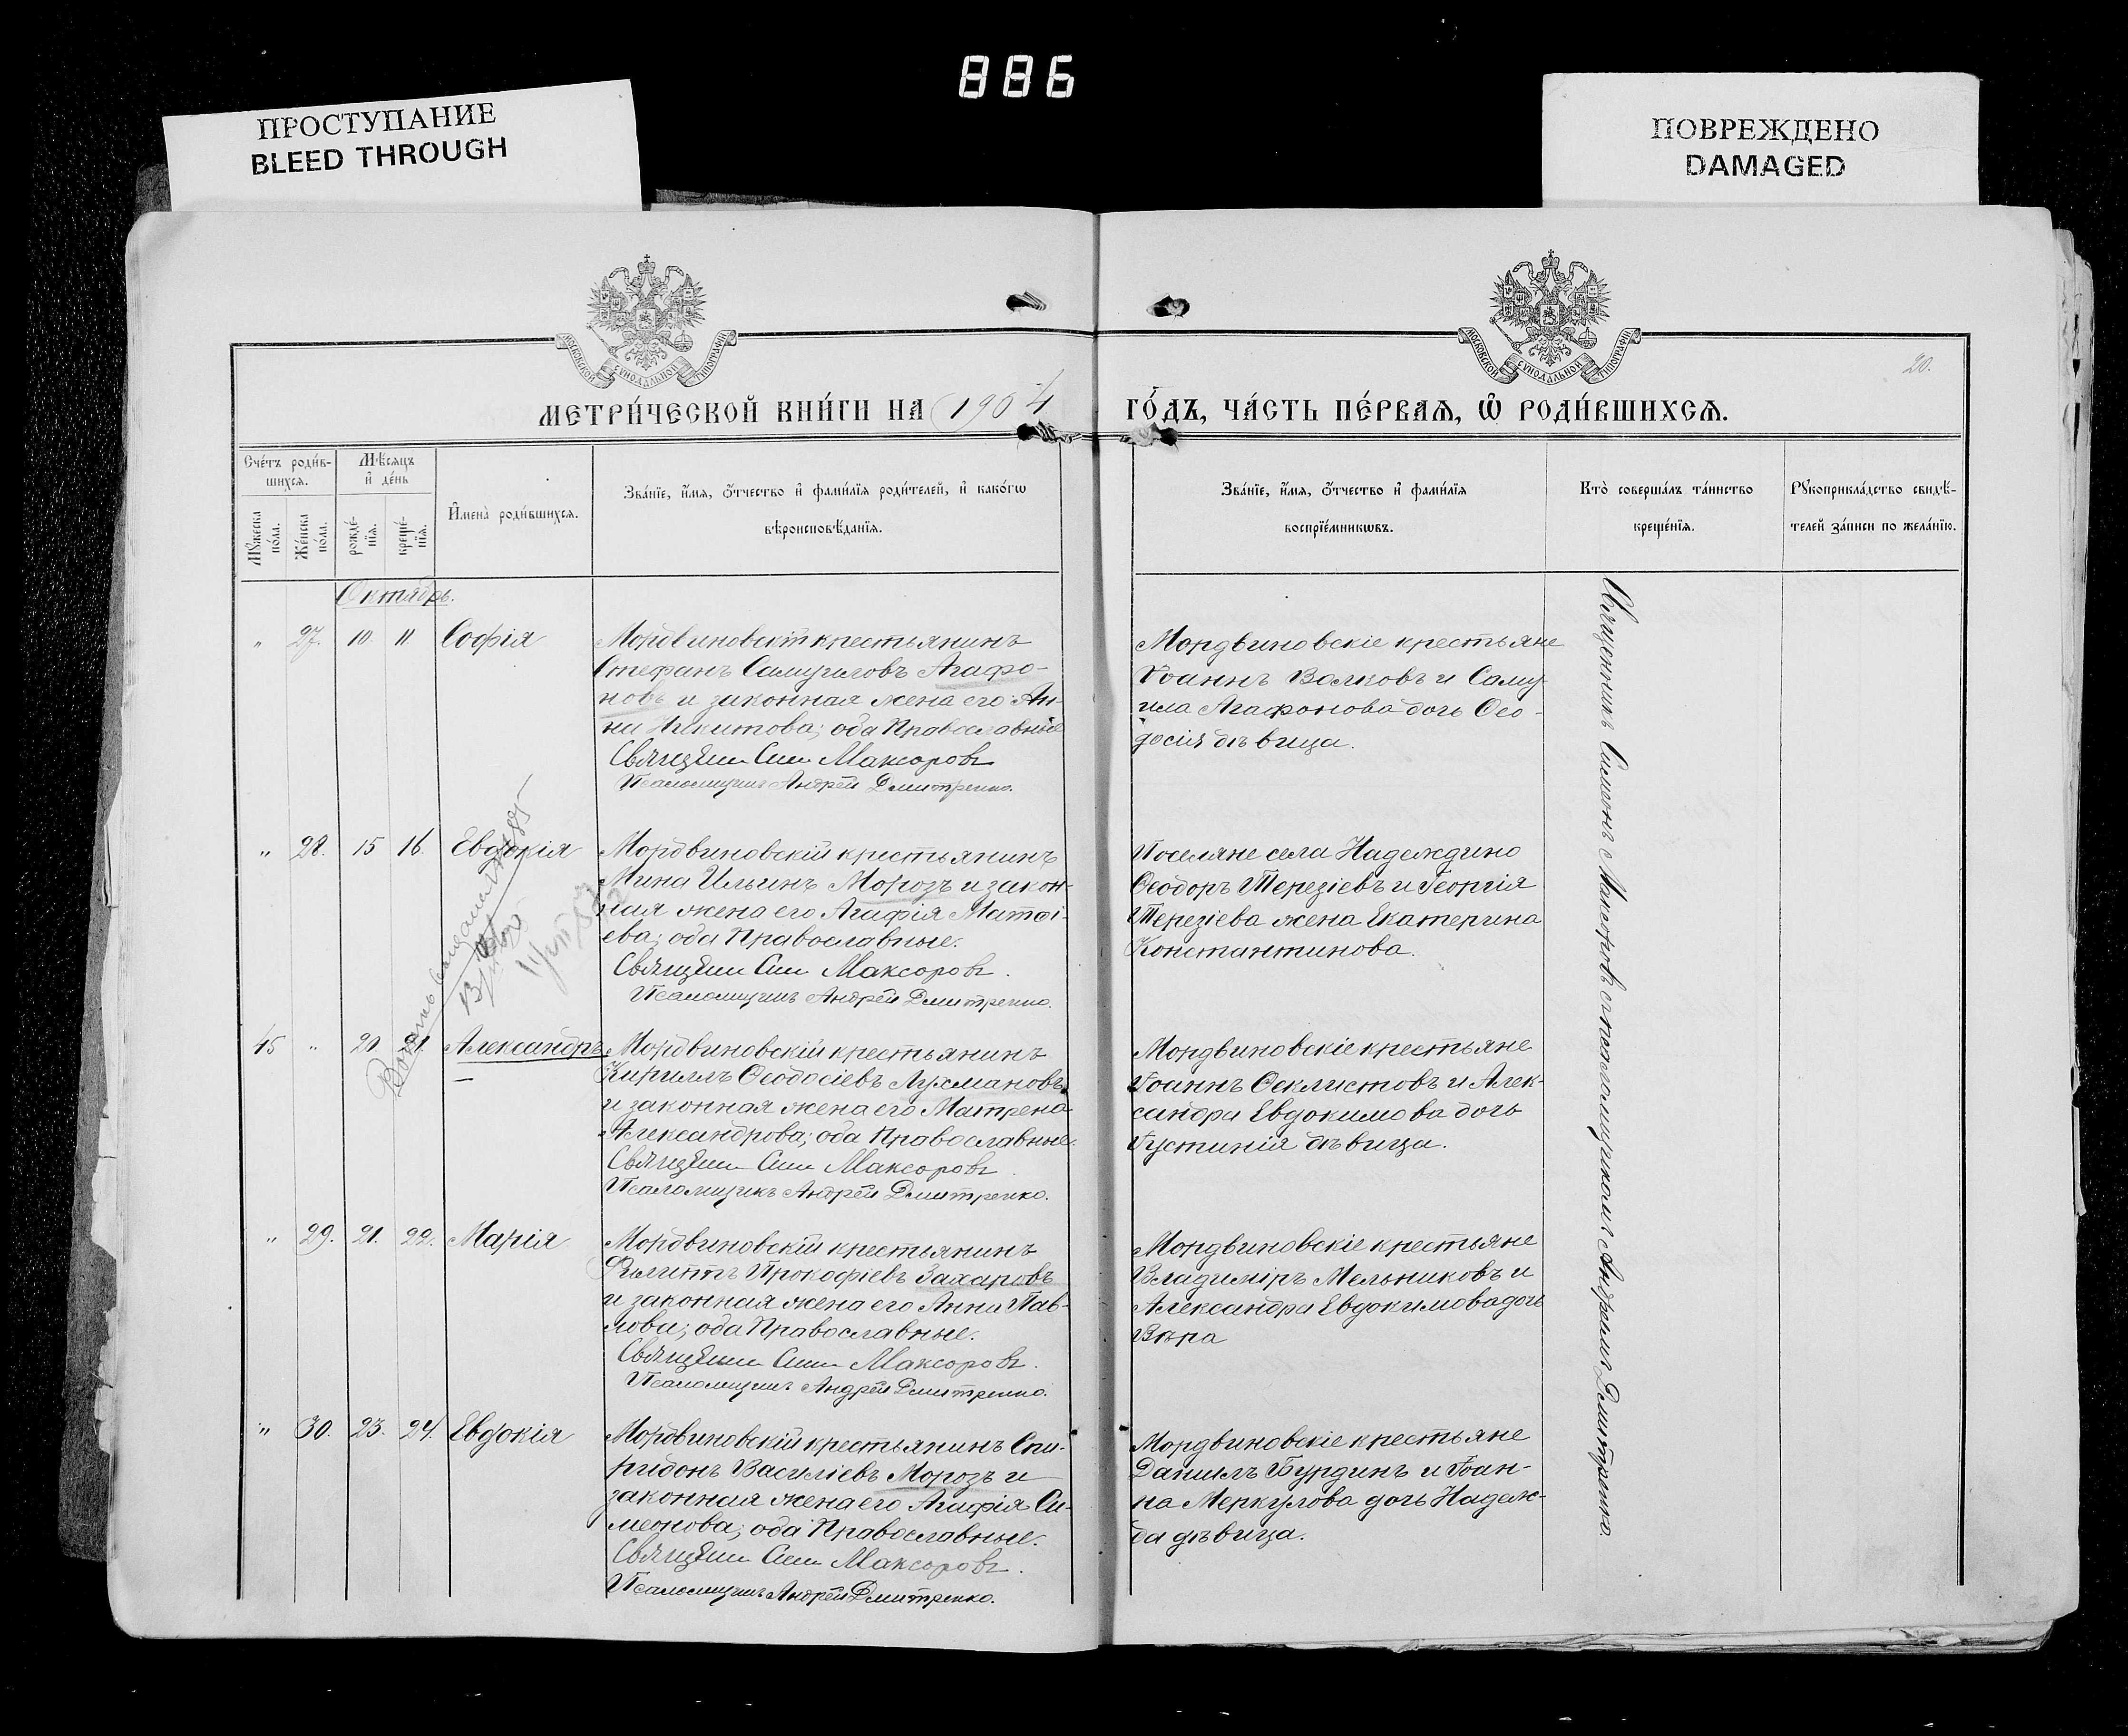 886
ПРОСТУПАНИЕ
BLEED THROUGH
ПОВРЕЖДЕНО
DAMAGED
МОСКОВСКОЙ СѴНОДАЛЬНОЙ ТИПОГРАФІИ
МОСКОВСКОЙ СѴНОДАЛЬНОЙ ТИПОГРАФІИ
20.
МЕТРИ́ЧЕСКОЙ КНИ́ГИ НА 1904
ГО́ДЪ, ЧА́СТЬ ПЕ́РВАЯ, Ѡ҆ РОДИ́ВШИХСЯ.
Сче́тъ роди́в-
шихся.
Мѣ́сяцъ
и҆ де́нь
Мꙋ́жеска
по́ла.
Же́нска
по́ла.
рожде́-
нїѧ.
креще́-
нїѧ.
И҆мена̀ роди́вшихся.
Зва́нїе, и҆́мя, ѻ҆́тчество и҆ фами́лїя роди́телей, и҆ како́гѡ
вѣроисповѣ́данїя.
Зва́нїе, и҆́мя, ѻ҆́тчество и҆ фами́лїя
воспрїе́мникѡвъ.
Кто̀ соверша́лъ та́инство
креще́нїя.
Рꙋкоприкла́дство свидѣ́-
телей за́писи по жела́нїю.
Октябрь.
" 27. 10 11 Софія
Мордвиновскій крестьянинъ
Стефанъ Самуиловъ Агафо-
новъ и законная жена его Ан-
на Никитова; оба Православные
Священ Сим Максоровъ
Псаломщикъ Андрей Дмитренко.
Мордвиновскіе крестьяне
Іоаннъ Волковъ и Саму-
ила Агафонова дочь Ѳео-
досія дѣвица.
" 28. 15 16. Евдокія
Мордвиновскій крестьянинъ
Мина Ильинъ Морозъ и закон-
ная жена его Агафія Матѳі-
ева; оба Православные.
Священ Сим Максоровъ.
Псаломщикъ Андрей Дмитренко.
Поселяне села Надеждино
Ѳеодоръ Терезіевъ и Георгія
Терезіева жена Екатерина
Константинова.
45 " 20 21. Александръ
Мордвиновскій крестьянинъ
Кириллъ Ѳеодосіевъ Лухмановъ
и законная жена его Матрена
Александрова; оба Православные.
Священ Сим Максоровъ.
Псаломщикъ Андрей Дмитренко.
Мордвиновскіе крестьяне
Іоаннъ Ѳеклистовъ и Алек-
сандра Евдокимова дочь
Іустинія дѣвица.
" 29. 21. 22. Марія
Мордвиновскій крестьянинъ
Филиппъ Прокофіевъ Захаровъ
и законная жена его Анна Пав-
лова; оба Православные.
Священ Сим Максоровъ.
Псаломщикъ Андрей Дмитренко.
Мордвиновскіе крестьяне
Владиміръ Мельниковъ и
Александра Евдокимова дочь
Вѣра
" 30. 23. 24. Евдокія
Мордвиновскій крестьянинъ Спи-
ридонъ Василіевъ Морозъ и
законная жена его Агафія Си-
меонова; оба Православные.
Священ Сим Максоровъ.
Псаломщикъ Андрей Дмитренко.
Мордвиновскіе крестьяне
Даніилъ Бурдинъ и Іоан-
на Меркулова дочь Надеж-
да дѣвица.
Священникъ Симеонъ Максоровъ съ псаломщикомъ Андреемъ Дмитренко.